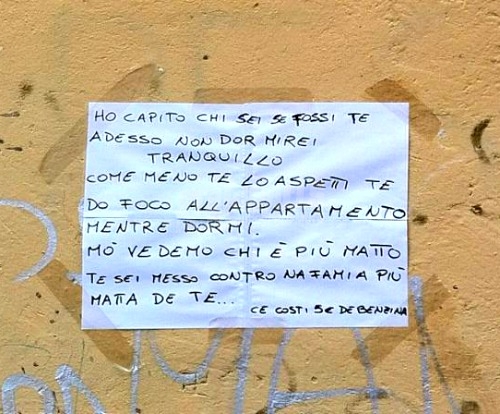 HO CAPITO CHI SEI SE FOSSI TE
ADESSO NON DORMIREI
TRANQUILLO
COME MENO TE LO ASPETTI TE
DO FOCO ALL'APPARTAMENTO
MENTRE DORMI.
MÒ VEDEMO CHI È PIÙ MATTO
TE SEI MESSO CONTRO NA FAMIA PIÙ
MATTA DE TE...
CE COSTI 5€ DE BENZINA